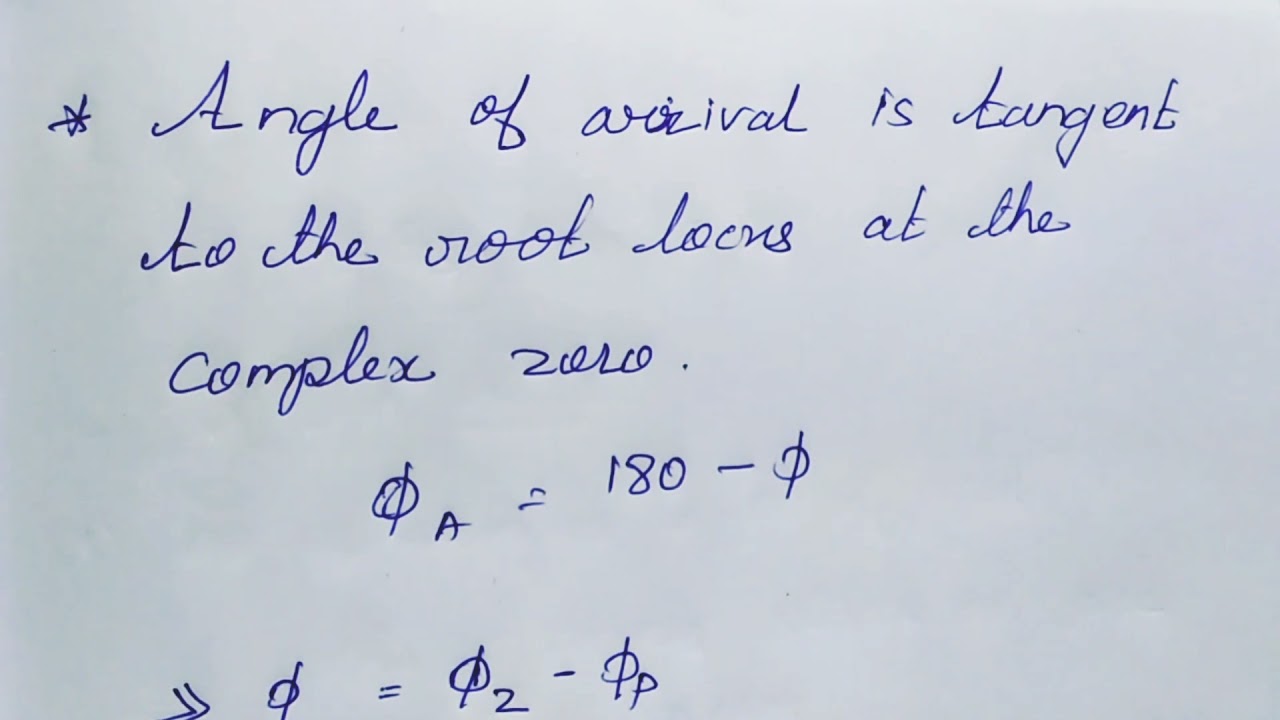 * Angle of arrival is tangent
to the root locus at the
complex zero.
ϕ_A = 180 - ϕ
⇒ ϕ = ϕ_Z - ϕ_P